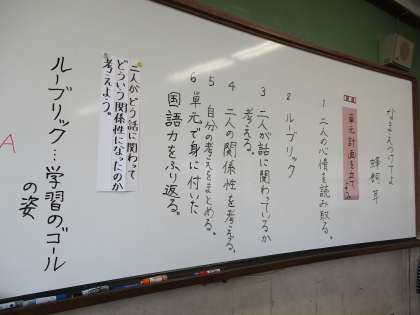 なまえつけてよ
蜂飼耳
単元計画を立てよう
1 二人の心情を読み取る。
2 ルーブリック
3 二人が話に関わっているか
考える。
4 二人の関係性を考える。
5 自分の考えをまとめる。
6 単元で身に付いた
国語力をふり返る。
二人がどう話に関わって
どういう関係性になったのか
考えよう。
ルーブリック…学習のゴール
の姿
A